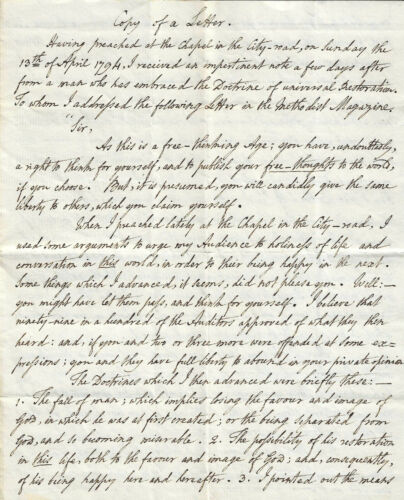 Copy of a Letter.
Having preached at the Chapel in the City-road, on Sunday the
13th of April 1794. I received an impertinent note a few days after
from a man who has embraced the Doctrine of universal Restoration.
To whom I addressed the following Letter in the Methodist Magazine.
"Sir,
As this is a free-thinking Age; you have, undoubtedly,
a right to think for yourself, and to publish your free-thoughts to the world,
if you choose. But, it is presumed, you will candidly give the same
liberty to others, which you claim yourself.
When I preached lately at the Chapel in the City-road, I
used some arguments to urge my Audience to holiness of life and
conversation in this world, in order to their being happy in the next.
Some things which I advanced, it seems, did not please you. Well:—
you might have let them pass, and think for yourself. I believe that
ninety-nine in a hundred of the Auditors approved of what they then
heard: and, if you and two or three more were offended at some ex-
pressions; you and they have full liberty to abound in your private opinion
The Doctrines which I then advanced were briefly these:—
1. The fall of man; which implies losing the favour and image of
God, in which he was at first created; or the being separated from
God, and so becoming miserable. 2. The possibility of his restoration
in this life, both to the favour and image of God; and, consequently,
of his being happy here and hereafter. 3. I pointed out the means